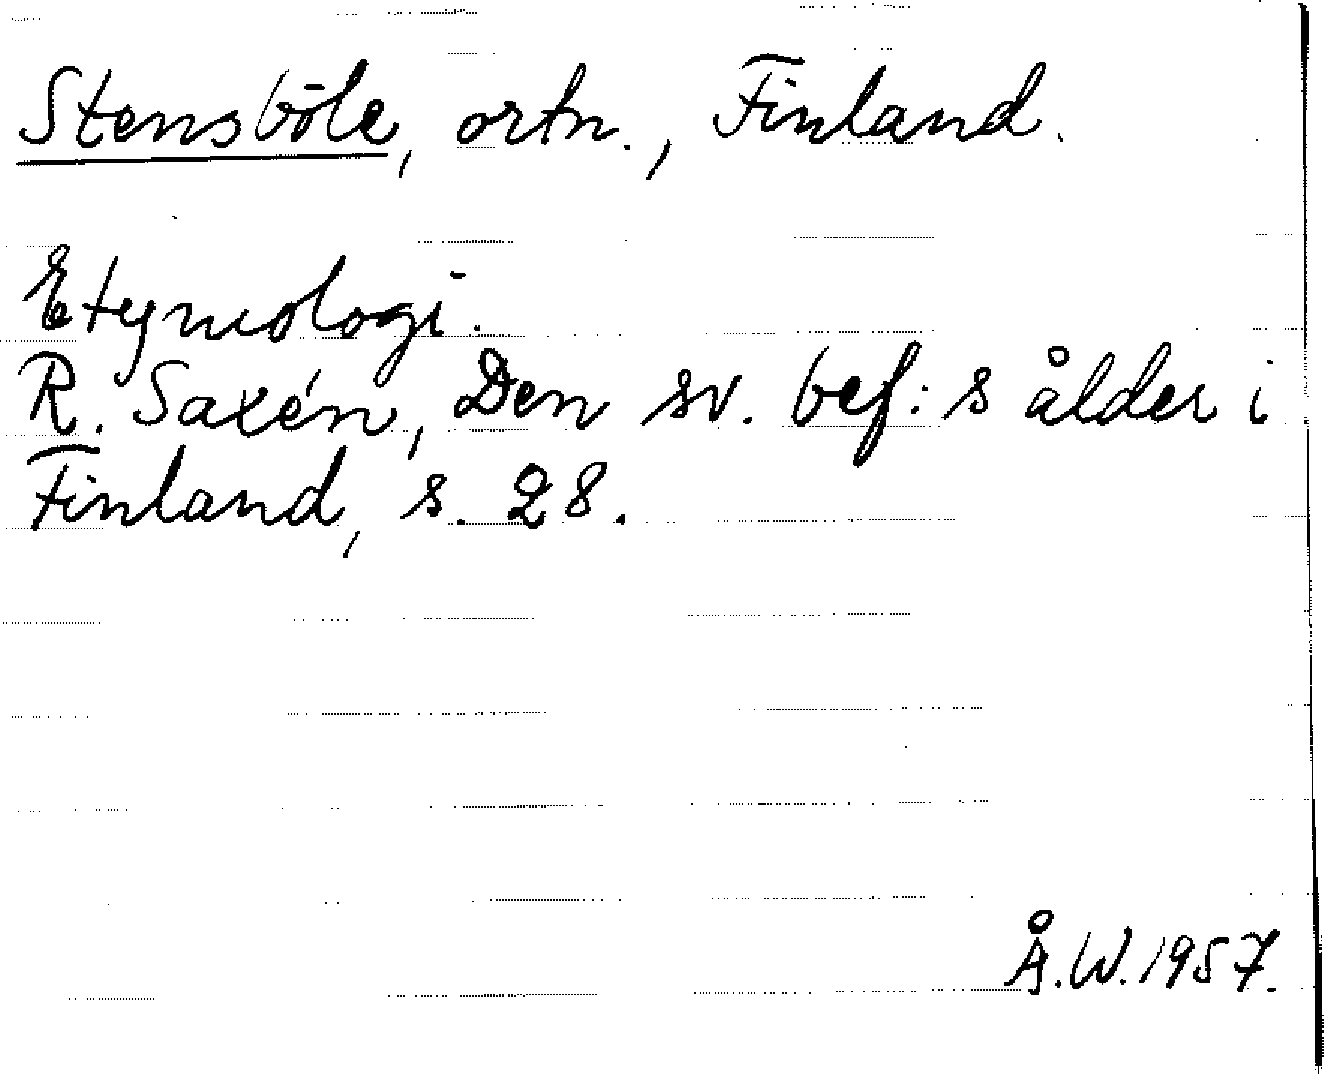 Stensböle, ortn., Finland.
Etymologi.
R. Saxén, Den sv. bef:s ålder i
Finland, s. 28.
Å.W. 1957.